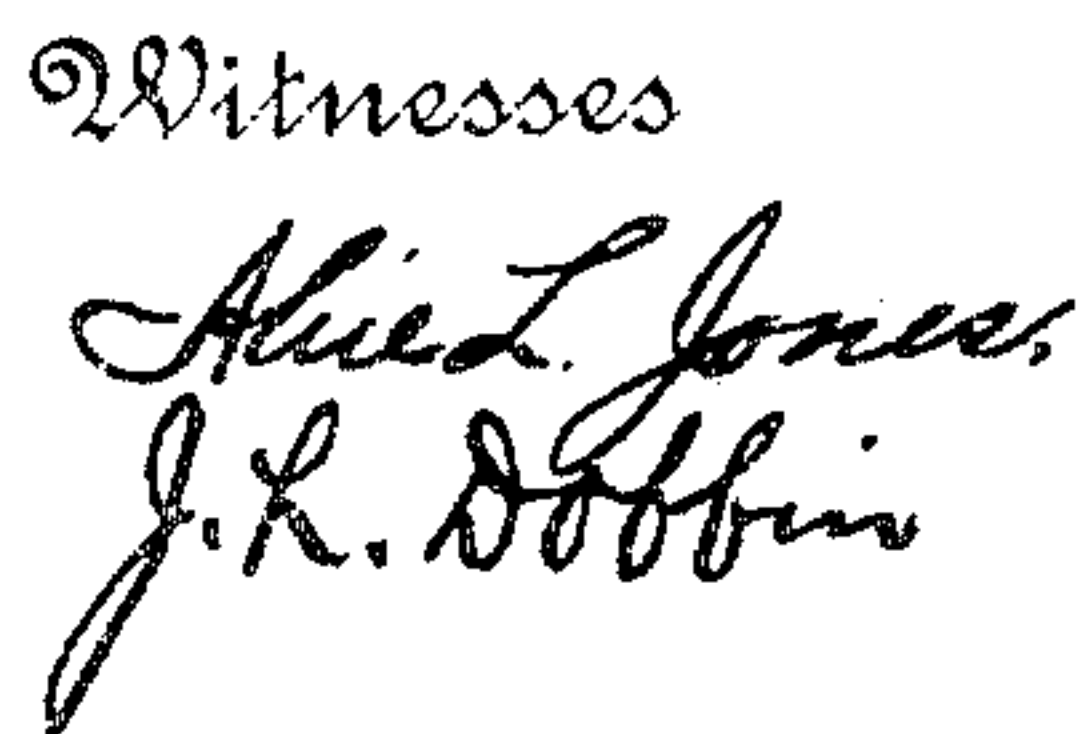 Witnesses
Alice L. Jones.
J. R. Dobbin